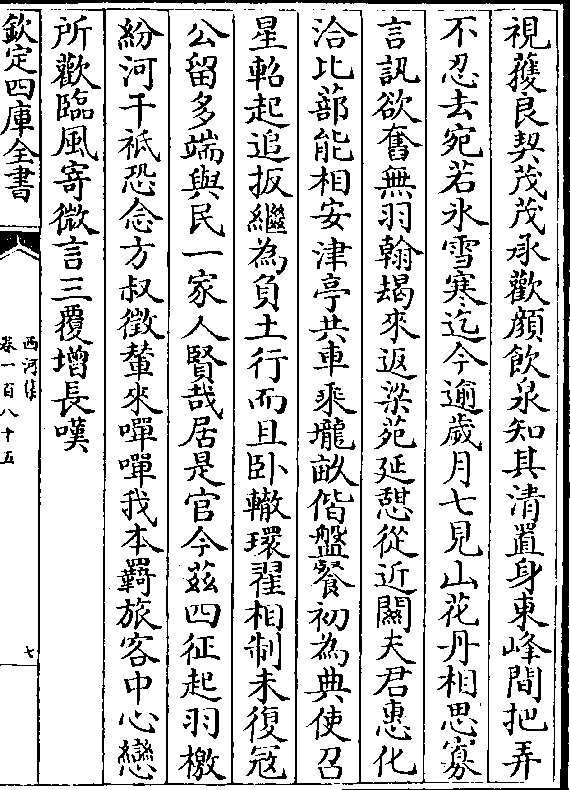 視蒦良契茂茂承歡顏飲泉知其清置身東峰間把弄
不忍去宛若氷雪寒迄今逾歲月七見山花丹相思寡
言訊欲奮無羽翰朅來返梁苑延憇從近關夫君惠化
洽比蔀能相安津亭共車乘壠畝偕盤餐初為典使召
星軺起追扳繼為負土行而且卧轍環翟相制未復寇
公留多端與民一家人賢哉居是官今茲四征起羽檄
紛河干祗恐念方叔徵輦來嘽嘽我本羇旅客中心戀
所歡臨風寄微言三覆增長嘆
欽定四庫全書
西河集
卷一百八十五
七